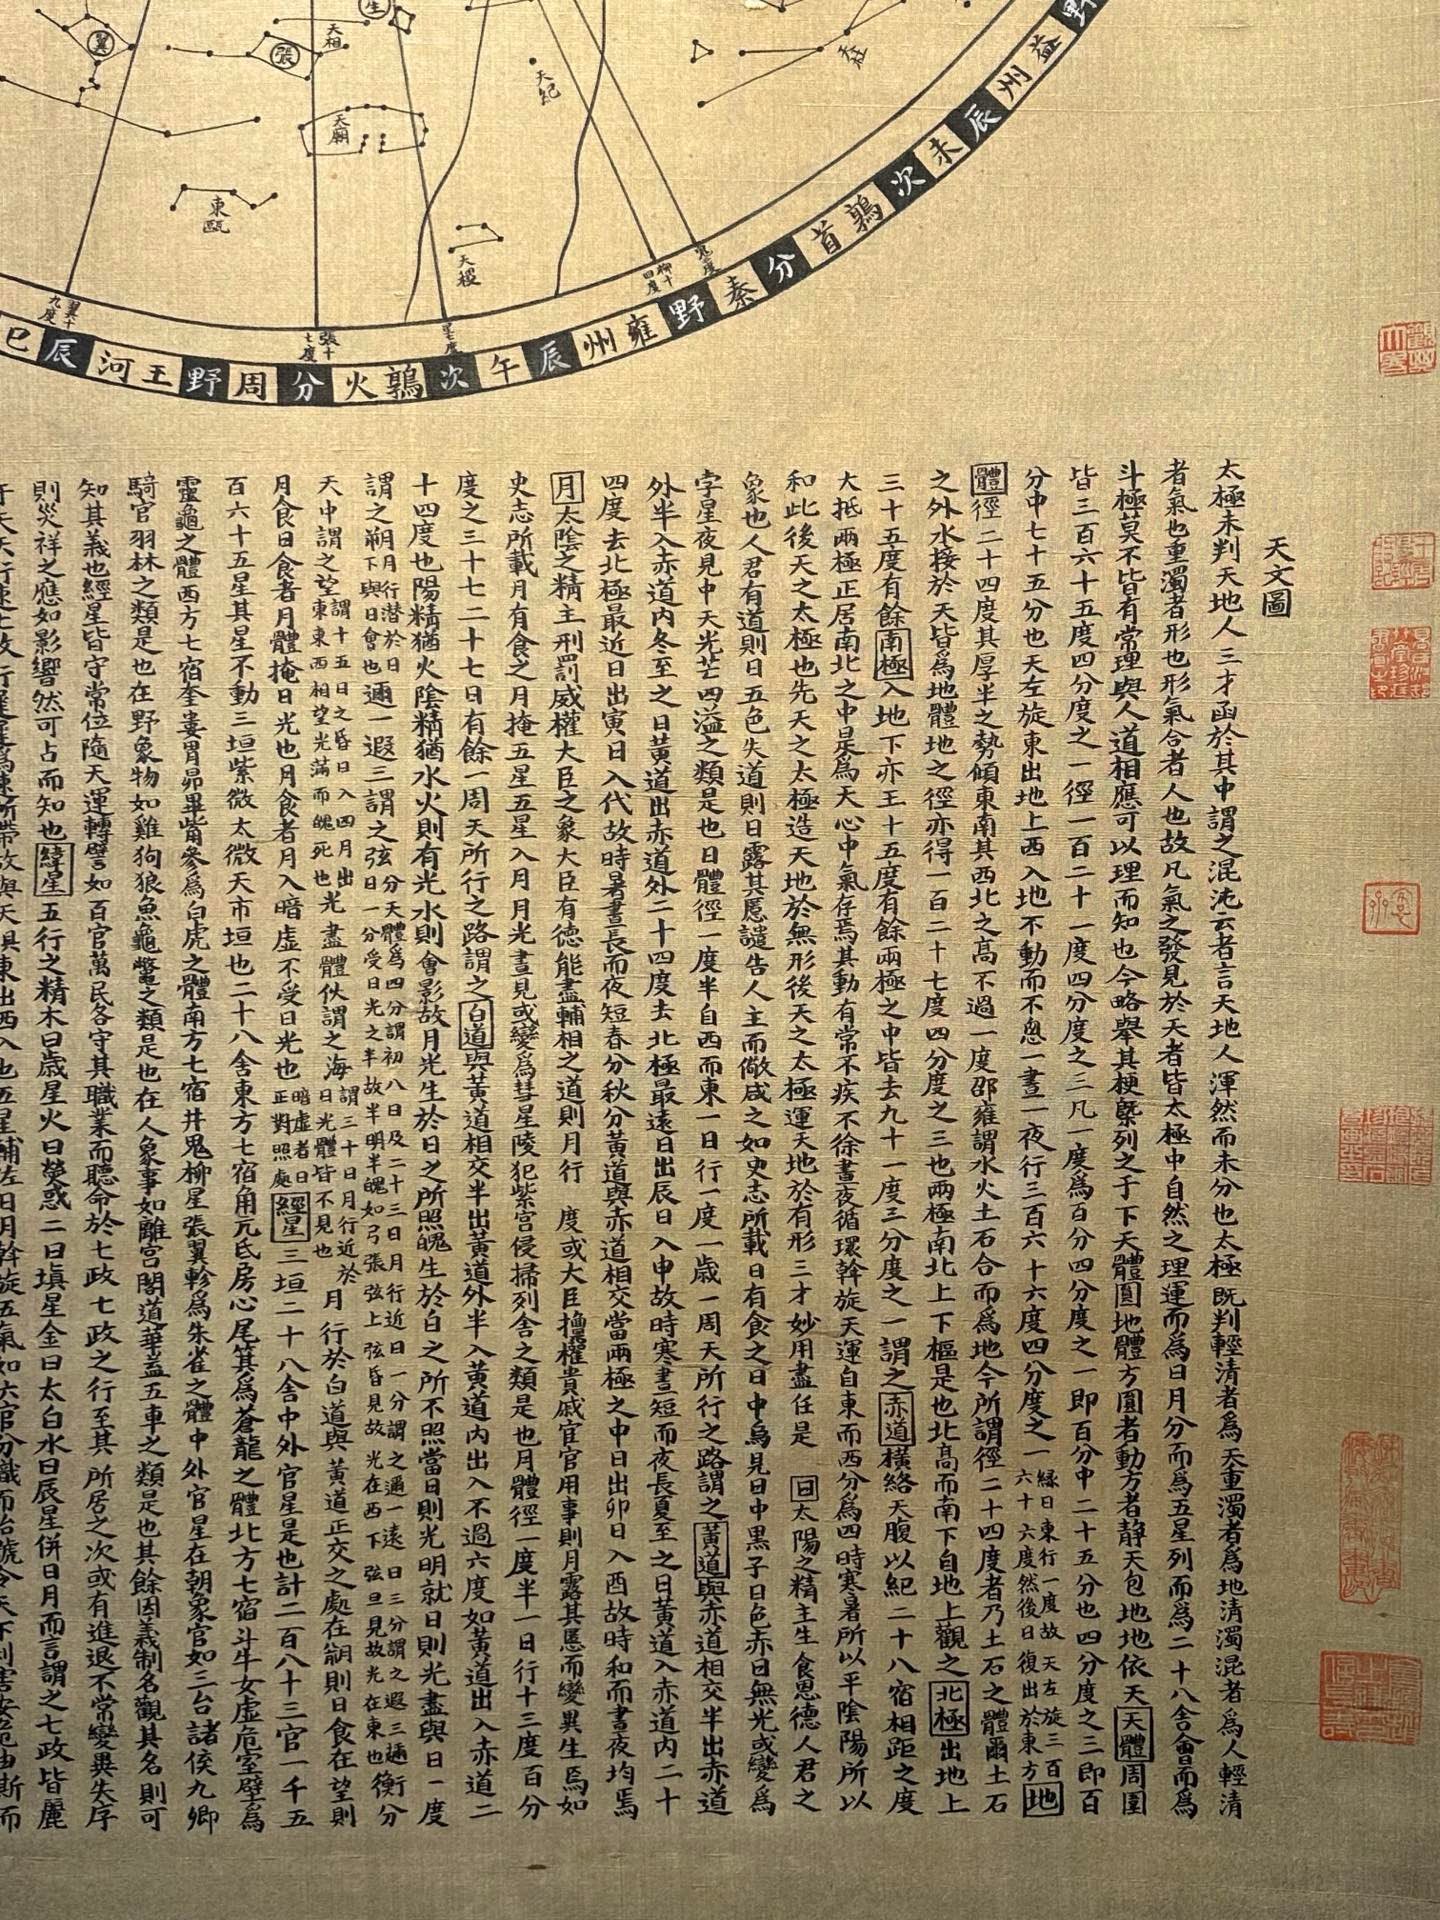 翼
張
天相
天廟
天紀
天社
東甌
天稷
翼十九度
張十七度
星七度
柳十四度
野益州辰未次鶉首分秦野雍州辰午次鶉火分周野王河辰巳
天文圖
太極未判天地人三才函於其中謂之混沌云者言天地人渾然而未分也太極既判輕清者為天重濁者為地清濁混者為人輕清
者氣也重濁者形也形氣合者人也故凡氣之發見於天者皆太極中自然之理運而為日月分而為五星列而為二十八舍會而為
斗極莫不皆有常理與人道相應可以理而知也今略舉其梗槩列之于下天體圓地體方圓者動方者靜天包地地依天天體周圍
皆三百六十五度四分度之一徑一百二十一度四分度之三凡一度為百分四分度之一即百分中二十五分也四分度之三即百
分中七十五分也天左旋東出地上西入地下動而不息一晝一夜行三百六十六度四分度之一緣日東行一度故天左旋三百六十六度然後日復出於東方地
體徑二十四度其厚半之勢傾東南其西北之高不過一度邵雍謂水火土石合而為地今所謂徑二十四度者乃土石之體爾土石
之外水接於天皆為地體地之徑亦得一百二十七度四分度之三也兩極南北上下樞是也北高而南下自地上觀之北極出地上
三十五度有餘南極入地下亦王十五度有餘兩極之中皆去九十一度三分度之一謂之赤道橫絡天腹以紀二十八宿相距之度
大抵兩極正居南北之中是為天心中氣存焉其動有常不疾不徐晝夜循環斡旋天運自東而西分為四時寒暑所以平陰陽所以
和此後天之太極也先天之太極造天地於無形後天之太極運天地於有形三才妙用盡任是 日太陽之精主生食恩德人君之
象也人君有道則日五色失道則日露其慝譴告人主而儆戒之如史志所載日有食之日中烏見日中黑子日色赤日無光或變為
孛星夜見中天光芒四溢之類是也日體徑一度半自西而東一日行一度一歲一周天所行之路謂之黃道與赤道相交半出赤道
外半入赤道內冬至之日黃道出赤道外二十四度去北極最遠日出辰日入申故時寒晝短而夜長夏至之日黃道入赤道內二十
四度去北極最近日出寅日入代故時暑晝長而夜短春分秋分黃道與赤道相交當兩極之中日出卯日入酉故時和而晝夜均焉
月太陰之精主刑罰威權大臣之象大臣有德能盡輔相之道則月行 度或大臣擅權貴戚宦官用事則月露其慝而變異生焉如
史志所載月有食之月掩五星五星入月月光晝見或變為彗星陵犯紫宮侵掃列舍之類是也月體徑一度半一日行十三度百分
度之三十七二十七日有餘一周天所行之路謂之白道與黃道相交半出黃道外半入黃道內出入不過六度如黃道出入赤道二
十四度也陽精猶火陰精猶水火則有光水則會影故月光生於日之所照魄生於日之所不照當日則光明就日則光盡與日一度
謂之朔月行潛於日下與日會也邇一遐三謂之弦分天體為四分謂初八日及二十三日月行近日一分謂之邇一遠日三分謂之遐三邇日一分受日光之半故半明半魄如弓張弦上弦昏見故光在西下弦旦見故光在東也衡分
天中謂之望謂十五日之昏日入四月出東東西相望光滿而魄死也光盡體伏謂之海謂三十日月行近於日光體皆不見也月行於白道與黃道正交之處在朔則日食在望則
月食日食者月體掩日光也月食者月入暗虛不受日光也暗虛者日正對照處經星三垣二十八舍中外官星是也計二百八十三官一千五
百六十五星其星不動三垣紫微太微天市垣也二十八舍東方七宿角亢氐房心尾箕為蒼龍之體北方七宿斗牛女虛危室壁為
靈龜之體西方七宿奎婁胃昴畢觜參為白虎之體南方七宿井鬼柳星張翼軫為朱雀之體中外官星在朝象官如三台諸侯九卿
騎官羽林之類是也在野象物如雞狗狼魚龜鱉之類是也在人象事如離宮閣道華蓋五車之類是也其餘因義制名觀其名則可
知其義也經星皆守常位隨天運轉譬如百官萬民各守其職業而聽命於七政七政之行至其所居之次或有進退不常變異失序
則災祥之應如影響然可占而知也緯星五行之精木曰歲星火曰熒惑二曰填星金曰太白水曰辰星併日月而言謂之七政皆麗